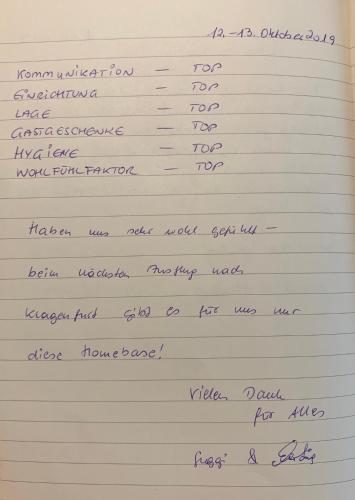 12.-13. Oktober 2019
KOMMUNIKATION — TOP
EINRICHTUNG — TOP
LAGE — TOP
GASTGESCHENKE — TOP
HYGIENE — TOP
WOHLFÜHLFAKTOR — TOP
Haben uns sehr wohl gefühlt –
beim nächsten Ausflug nach
Klagenfurt gibt es für uns nur
diese Homebase!
Vielen Dank
für Alles
&